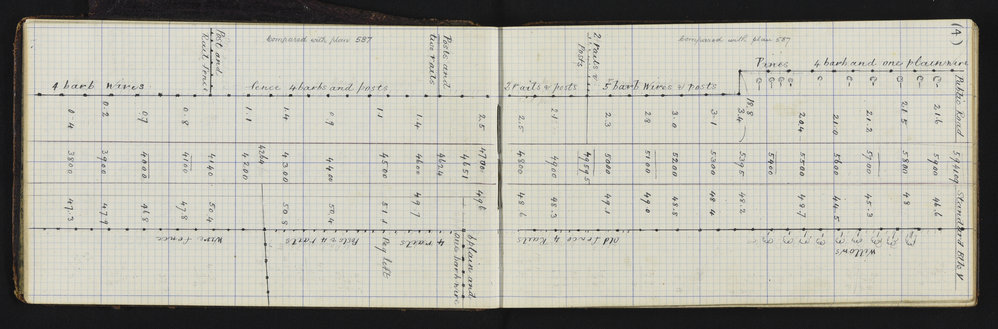 (4)
Compared with plan 587
Compared with plan 587
Post and
Rail Fence
Posts and
two rails
2 rails &
Posts
Pines
4 barb and one plain wire
4 barb wires
fence 4 barbs and posts
2 rails & posts
5 barb wires & posts
Public Road
Standard Blk V
0.4
0.2
0.7
0.8
1.1
1.4
0.9
1.1
1.4
2.5
2.5
2.1
2.3
2.9
3.0
3.1
3.4
18.8
20.4
21.0
21.2
21.5
21.6
3800
3900
4000
4100
4140
4200
4264
4300
4400
4500
4600
4624
4651
4700
4800
4900
4959.5
5000
5100
5200
5300
5395
5400
5500
5600
5700
5800
5900
47.3
47.9
46.8
47.8
50.4
50.8
50.4
51.1
49.7
49.6
48.6
48.3
49.1
49.0
48.8
48.4
48.2
48.7
44.5
45.3
48
46.6
Wire fence
Posts 4 rails
Peg left
4 rails
6 plain and
one barb wire
Old fence 4 Rails
Willows